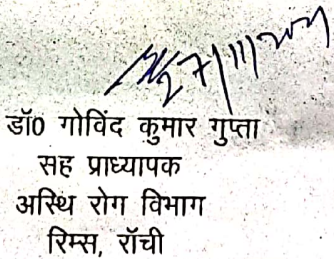 27/11/2021
डॉ0 गोविंद कुमार गुप्ता
सह प्राध्यापक
अस्थि रोग विभाग
रिम्स, रॉची